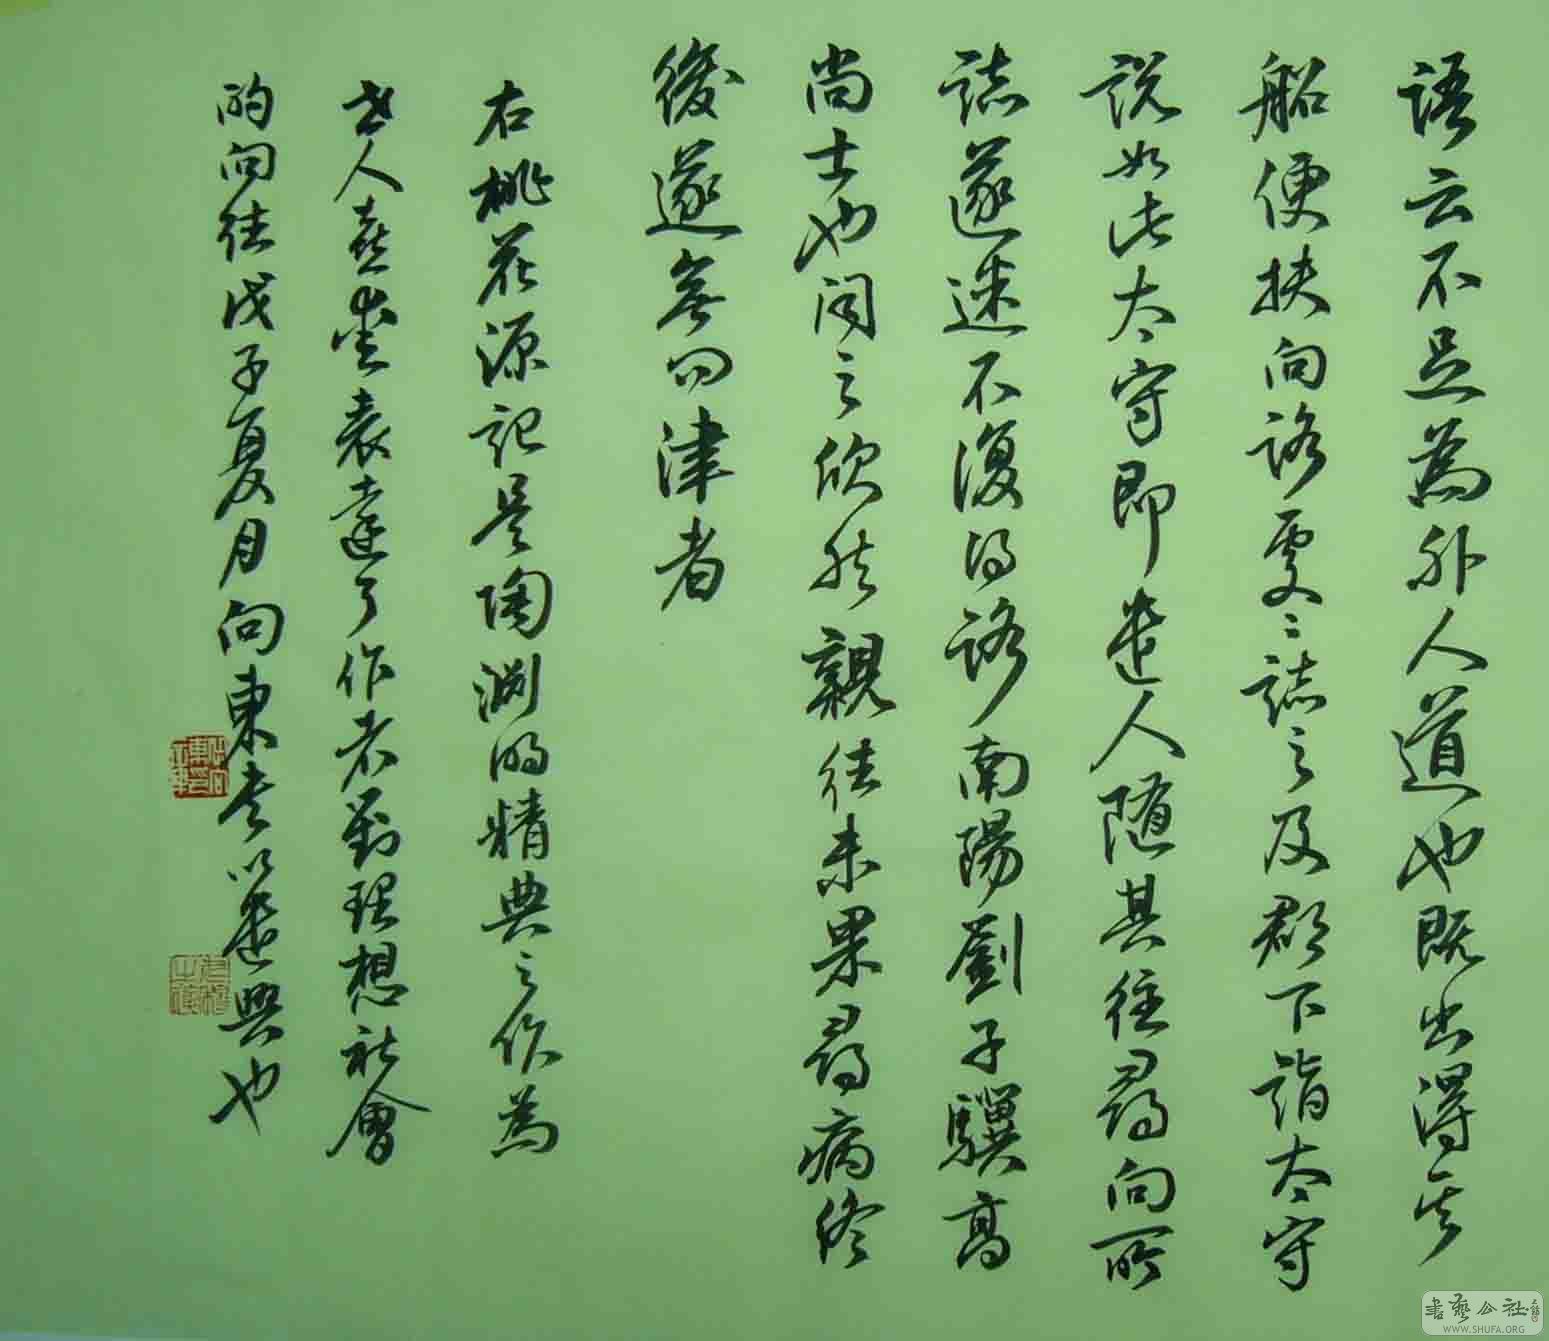 語云不足為外人道也既出得其
船便扶向路處〻誌之及郡下詣太守
說如此太守即遣人隨其往尋向所
誌遂迷不復得路南陽劉子驥高
尚士也聞之欣然親往未果尋病終
後遂無問津者
右桃花源記是陶淵明精典之作為
世人喜愛表達了作者對理想社會
的向往戊子夏月向東書以遣興也
書藝公社
WWW.SHUFA.ORG